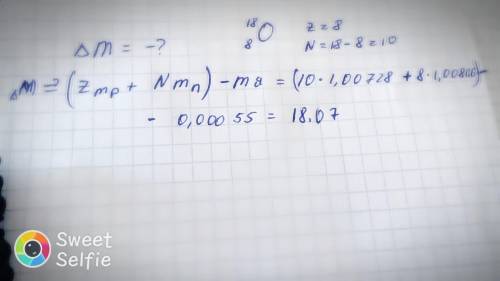 ΔM = -? 18 8 O Z = 8
N = 18 - 8 = 10
ΔM = (Zmp + Nmn) - mя = (10 · 1,00728 + 8 ·
- 0,00055 = 18.07
Sweet
Selfie